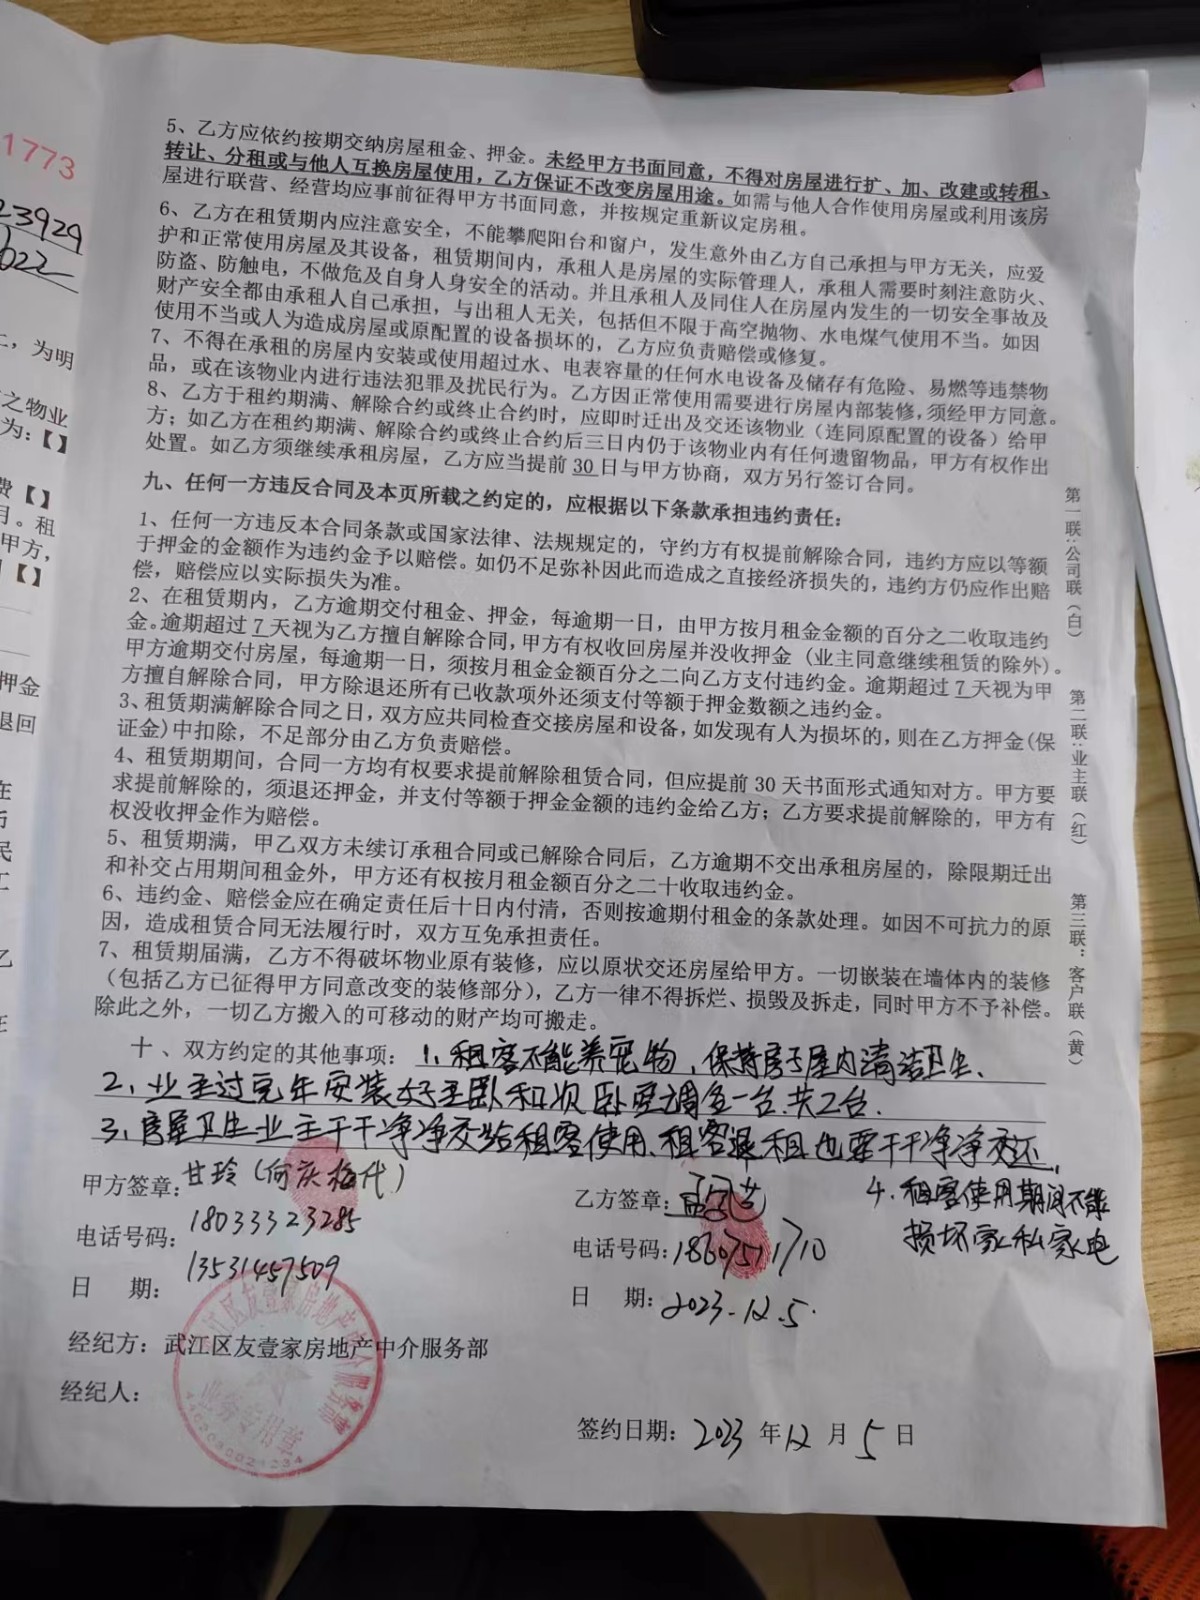 1773
23929
022
二，为明
之物业
为：【】
费【】
月。租
甲方，
【】
押金
退回
5、乙方应依约按期交纳房屋租金、押金。未经甲方书面同意，不得对房屋进行扩、加、改建或转租、
转让、分租或与他人互换房屋使用，乙方保证不改变房屋用途。如需与他人合作使用房屋或利用该房
屋进行联营、经营均应事前征得甲方书面同意，并按规定重新议定房租。
6、乙方在租赁期内应注意安全，不能攀爬阳台和窗户，发生意外由乙方自己承担与甲方无关，应爱
护和正常使用房屋及其设备，租赁期间内，承租人是房屋的实际管理人，承租人需要时刻注意防火、
防盗、防触电，不做危及自身人身安全的活动。并且承租人及同住人在房屋内发生的一切安全事故及
财产安全都由承租人自己承担，与出租人无关，包括但不限于高空抛物、水电煤气使用不当。如因
使用不当或人为造成房屋或原配置的设备损坏的，乙方应负责赔偿或修复。
7、不得在承租的房屋内安装或使用超过水、电表容量的任何水电设备及储存有危险、易燃等违禁物
品，或在该物业内进行违法犯罪及扰民行为。乙方因正常使用需要进行房屋内部装修，须经甲方同意。
8、乙方于租约期满、解除合约或终止合约时，应即时迁出及交还该物业（连同原配置的设备）给甲
方；如乙方在租约期满、解除合约或终止合约后三日内仍于该物业内有任何遗留物品，甲方有权作出
处置。如乙方须继续承租房屋，乙方应当提前 30 日与甲方协商，双方另行签订合同。
九、任何一方违反合同及本页所载之约定的，应根据以下条款承担违约责任：
1、任何一方违反本合同条款或国家法律、法规规定的，守约方有权提前解除合同，违约方应以等额
于押金的金额作为违约金予以赔偿。如仍不足弥补因此而造成之直接经济损失的，违约方仍应作出赔
偿，赔偿应以实际损失为准。
2、在租赁期内，乙方逾期交付租金、押金，每逾期一日，由甲方按月租金金额的百分之二收取违约
金。逾期超过 7 天视为乙方擅自解除合同，甲方有权收回房屋并没收押金（业主同意继续租赁的除外）。
甲方逾期交付房屋，每逾期一日，须按月租金金额百分之二向乙方支付违约金。逾期超过 7 天视为甲
方擅自解除合同，甲方除退还所有已收款项外还须支付等额于押金数额之违约金。
3、租赁期满解除合同之日，双方应共同检查交接房屋和设备，如发现有人为损坏的，则在乙方押金(保
证金)中扣除，不足部分由乙方负责赔偿。
4、租赁期期间，合同一方均有权要求提前解除租赁合同，但应提前 30 天书面形式通知对方。甲方要
求提前解除的，须退还押金，并支付等额于押金金额的违约金给乙方；乙方要求提前解除的，甲方有
权没收押金作为赔偿。
5、租赁期满，甲乙双方未续订承租合同或已解除合同后，乙方逾期不交出承租房屋的，除限期迁出
和补交占用期间租金外，甲方还有权按月租金额百分之二十收取违约金。
6、违约金、赔偿金应在确定责任后十日内付清，否则按逾期付租金的条款处理。如因不可抗力的原
因，造成租赁合同无法履行时，双方互免承担责任。
7、租赁期届满，乙方不得破坏物业原有装修，应以原状交还房屋给甲方。一切嵌装在墙体内的装修
（包括乙方已征得甲方同意改变的装修部分），乙方一律不得拆烂、损毁及拆走，同时甲方不予补偿。
除此之外，一切乙方搬入的可移动的财产均可搬走。
十、双方约定的其他事项：1、租客不能养宠物，保持房子屋内清洁卫生、
2、业主过完年安装好主卧和次卧空调各一台共2台.
3、房屋卫生业主干干净净交给租客使用、租客退租也要干干净净交还，
4、租客使用期间不能
损坏家私家电
甲方签章：甘玲（何庆梅代）
电话号码：18033323285
13531457509
日 期：
乙方签章：
电话号码：18607511710
日 期：2023.12.5.
经纪方：武江区友壹家房地产中介服务部
经纪人：
武江区友壹家房地产中介服务部
业务专用章
签约日期：2023 年 12 月 5 日
第一联：公司联（白）
第二联：业主联（红）
第三联：客户联（黄）